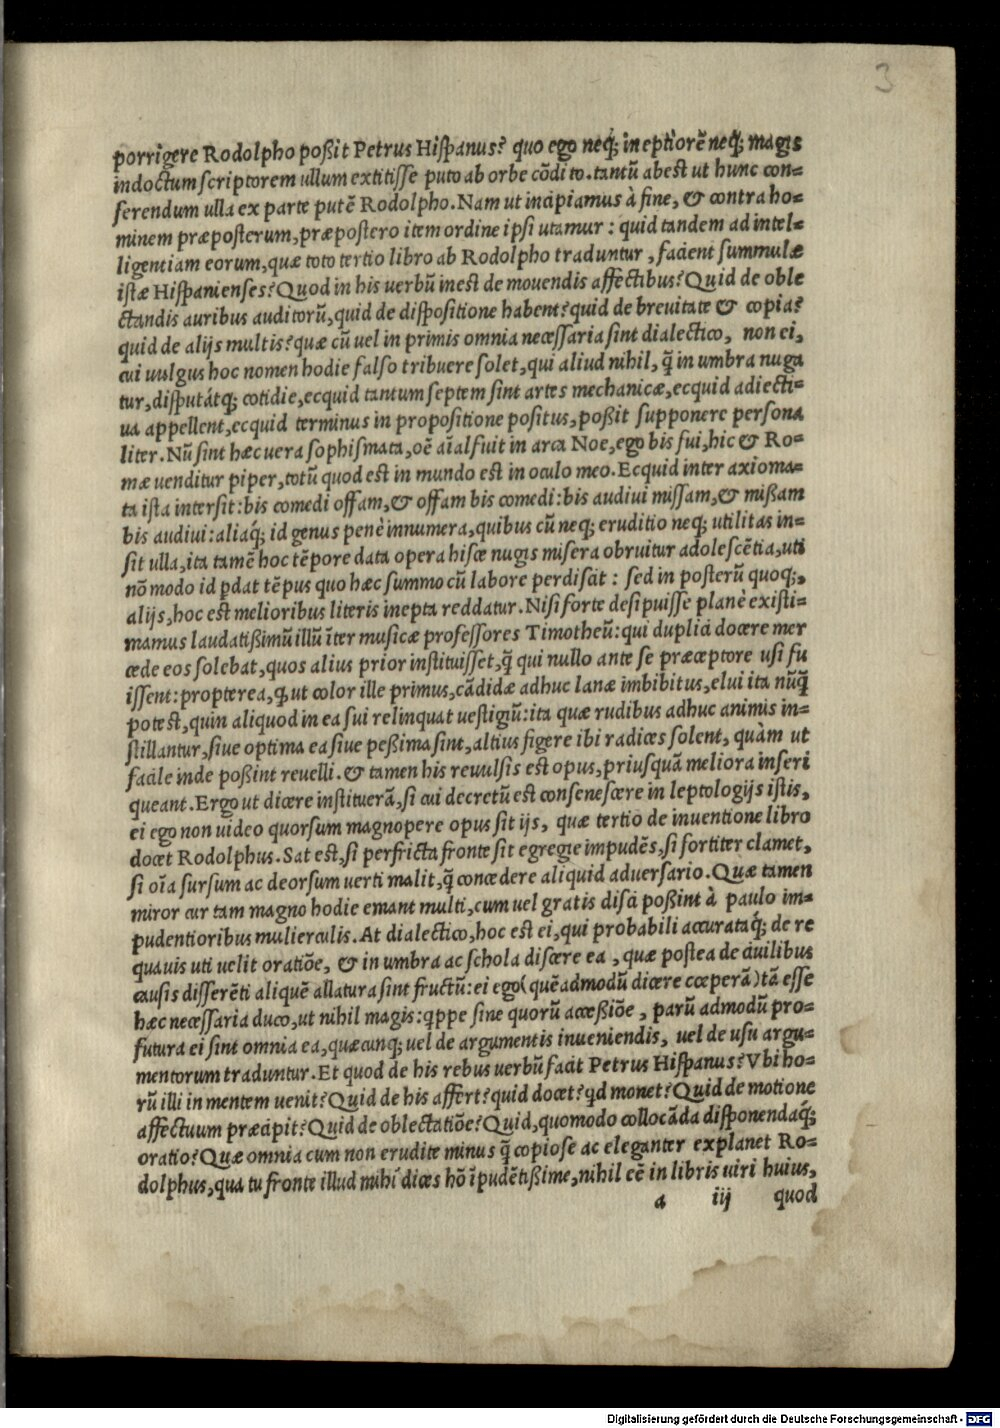 3
porrigere Rodolpho poßit Petrus Hiſpanus? quo ego neq; ineptiorē neq; magis
indoctum ſcriptorem ullum extitiſſe puto ab orbe cōdito. tantū abest ut hunc con=
ferendum ulla ex parte putē Rodolpho. Nam ut incipiamus à fine, & contra ho=
minem præposterum, præpostero item ordine ipſi utamur: quid tandem ad intel=
ligentiam eorum, quæ toto tertio libro ab Rodolpho traduntur, facient ſummulæ
istæ Hiſpanienſes? Quod in his uerbū inest de mouendis affectibus? Quid de oble
ctandis auribus auditorū, quid de diſpoſitione habent? quid de breuitate & copia?
quid de alijs multis? quæ cū uel in primis omnia neceſſaria ſint dialectico, non ei,
cui uulgus hoc nomen hodie falſo tribuere ſolet, qui aliud nihil, q̃ in umbra nuga
tur, diſputátq; cotidie, ecquid tantum ſeptem ſint artes mechanicæ, ecquid adiecti=
ua appellent, ecquid terminus in propoſitione poſitus, poßit ſupponere perſona
liter. Nū ſint hæc uera ſophiſmata, oē aīal fuit in arca Noe, ego bis fui, hic & Ro=
mæ uenditur piper, totū quod est in mundo est in oculo meo. Ecquid inter axioma=
ta ista interſit: bis comedi offam, & offam bis comedi: bis audiui miſſam, & mißam
bis audiui: aliaq́; id genus penè innumera, quibus cū neq; eruditio neq; utilitas in=
ſit ulla, ita tamē hoc tēpore data opera hiſce nugis miſera obruitur adoleſcētia, uti
nō modo id pdat tēpus quo hæc ſummo cū labore perdiſcāt: ſed in posterū quoq;,
alijs, hoc est melioribus literis inepta reddatur. Niſi forte deſipuiſſe planè existi=
mamus laudatißimū illū īter muſicæ profeſſores Timotheū: qui duplici docere mer
cede eos ſolebat, quos alius prior instituiſſet, q̃ qui nullo ante ſe præceptore uſi fu
iſſent: propterea, q, ut color ille primus, cādidæ adhuc lanæ imbibitus, elui ita nūq̃
potest, quin aliquod in ea ſui relinquat uestigiū: ita quæ rudibus adhuc animis in=
stillantur, ſiue optima ea ſiue peßima ſint, altius figere ibi radices ſolent, quàm ut
facile inde poßint reuelli. & tamen his reuulſis est opus, priuſquā meliora inſeri
queant. Ergo ut dicere instituerā, ſi cui decretū est conſeneſcere in leptologijs istis,
ei ego non uideo quorſum magnopere opus ſit ijs, quæ tertio de inuentione libro
docet Rodolphus. Sat est, ſi perfricta fronte ſit egregie impudēs, ſi fortiter clamet,
ſi oīa ſurſum ac deorſum uerti malit, q̃ concedere aliquid aduerſario. Quæ tamen
miror cur tam magno hodie emant multi, cum uel gratis diſci poßint à paulo im=
pudentioribus mulierculis. At dialectico, hoc est ei, qui probabili accurataq́; de re
quauis uti uelit oratiōe, & in umbra ac ſchola diſcere ea, quæ postea de ciuilibus
cauſis diſſerēti aliquē allatura ſint fructū: ei ego (quēadmodū dicere cœperā) tā eſſe
hæc neceſſaria duco, ut nihil magis: qppe ſine quorū acceßiōe, parū admodū pro=
futura ei ſint omnia ea, quæcunq; uel de argumentis inueniendis, uel de uſu argu=
mentorum traduntur. Et quod de his rebus uerbū facit Petrus Hiſpanus? Vbi ho=
rū illi in mentem uenit? Quid de his affert? quid docet? qd monet? Quid de motione
affectuum præcipit? Quid de oblectatiōe? Quid, quomodo collocāda diſponendaq́;
oratio? Quæ omnia cum non erudite minus q̃ copioſe ac eleganter explanet Ro=
dolphus, qua tu fronte illud mihi dices hō īpudētißime, nihil eē in libris uiri huius,
a iij quod
Digitalisierung gefördert durch die Deutsche Forschungsgemeinschaft - DFG